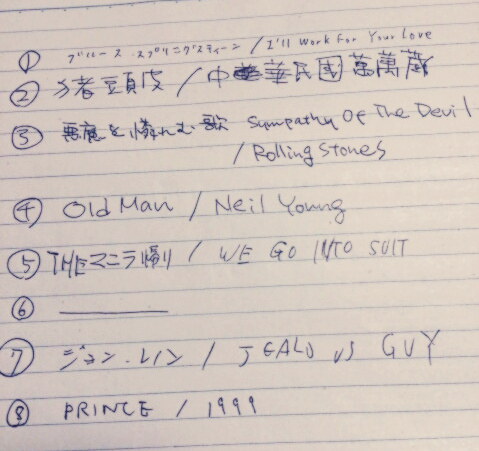 ① ブルース・スプリングスティーン / I'll Work For Your Love
② 頭皮 / 中華民國萬萬歳
③ 悪魔を憐れむ歌 Sympathy Of The Devil
/ Rolling Stones
④ Old Man / Neil Young
⑤ THEマニラ帰り / WE GO INTO SUIT
⑥
⑦ ジョン・レノン / JEALOUS GUY
⑧ PRINCE / 1999